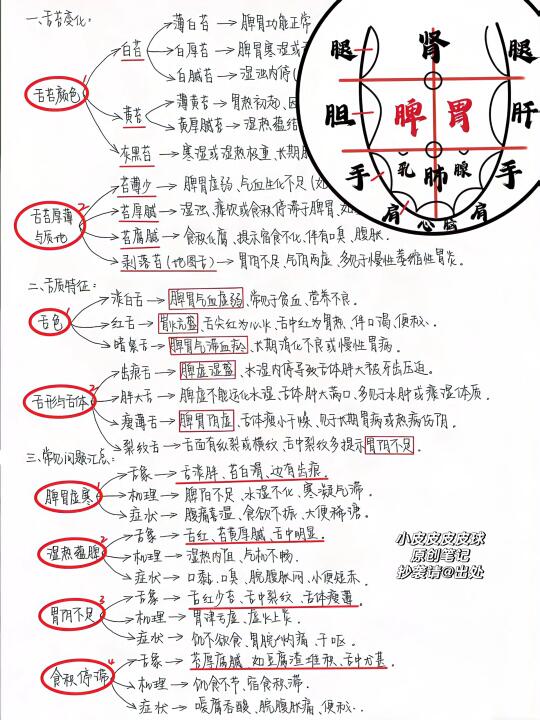 一、舌苔变化:
舌苔颜色 1
白苔
薄白苔→脾胃功能正常
白厚苔→脾胃寒湿或
白腻苔→湿浊内停(
黄苔
薄黄苔→胃热初起、
黄厚腻苔→湿热蕴结
灰黑苔→寒湿或湿热极重、长期
舌苔厚薄与质地 2
苔薄少→脾胃虚弱、气血生化不足(如
苔厚腻→湿浊、痰饮或食积停滞于脾胃、如
苔腐腻→食积化腐、提示宿食不化、伴有口臭、腹胀.
剥落苔(地图舌)→胃阴不足、气阴两虚、多见于慢性萎缩性胃炎.
二、舌质特征:
舌色 1
淡白舌→脾胃气血虚弱、常见于贫血、营养不良.
红舌→胃火亢盛、舌尖红为心火、舌中红为胃热、伴口渴、便秘..
暗紫舌→脾胃气滞血瘀、长期消化不良或慢性胃病.
舌形与舌体 2
齿痕舌→脾虚湿盛、水湿内停导致舌体胖大被牙齿压迫.
胖大舌→脾虚不能运化水湿、舌体胖大满口、多见于水肿或痰湿体质.
瘦薄舌→脾胃阴虚、舌体瘦小干燥、见于长期胃病或热病伤阴.
裂纹舌→舌面有纵裂或横纹、舌中裂纹多提示胃阴不足.
三、常见问题汇总:
脾胃虚寒 1
舌象→舌淡胖、苔白滑、边有齿痕.
病理→脾阳不足、水湿不化、寒凝气滞.
症状→腹痛喜温、食欲不振、大便稀溏.
湿热蕴脾 2
舌象→舌红、苔黄厚腻、舌中明显.
病理→湿热内阻、气机不畅.
症状→口黏、口臭、脘腹胀闷、小便短赤.
胃阴不足 3
舌象→舌红少苔、舌中裂纹、舌体瘦薄.
病理→胃津亏虚、虚火上炎.
症状→饥不欲食、胃脘灼痛、干呕.
食积停滞 4
舌象→苔厚腐腻、如豆腐渣堆积、舌中尤甚.
病理→饮食不节、宿食积滞.
症状→嗳腐吞酸、脘腹胀痛、便秘..
腿 肾 腿
胆 脾 胃 肝
手 乳 肺 腺 手
肩 心 脑 肩
小皮皮皮皮球
原创笔记
抄袭请@出处